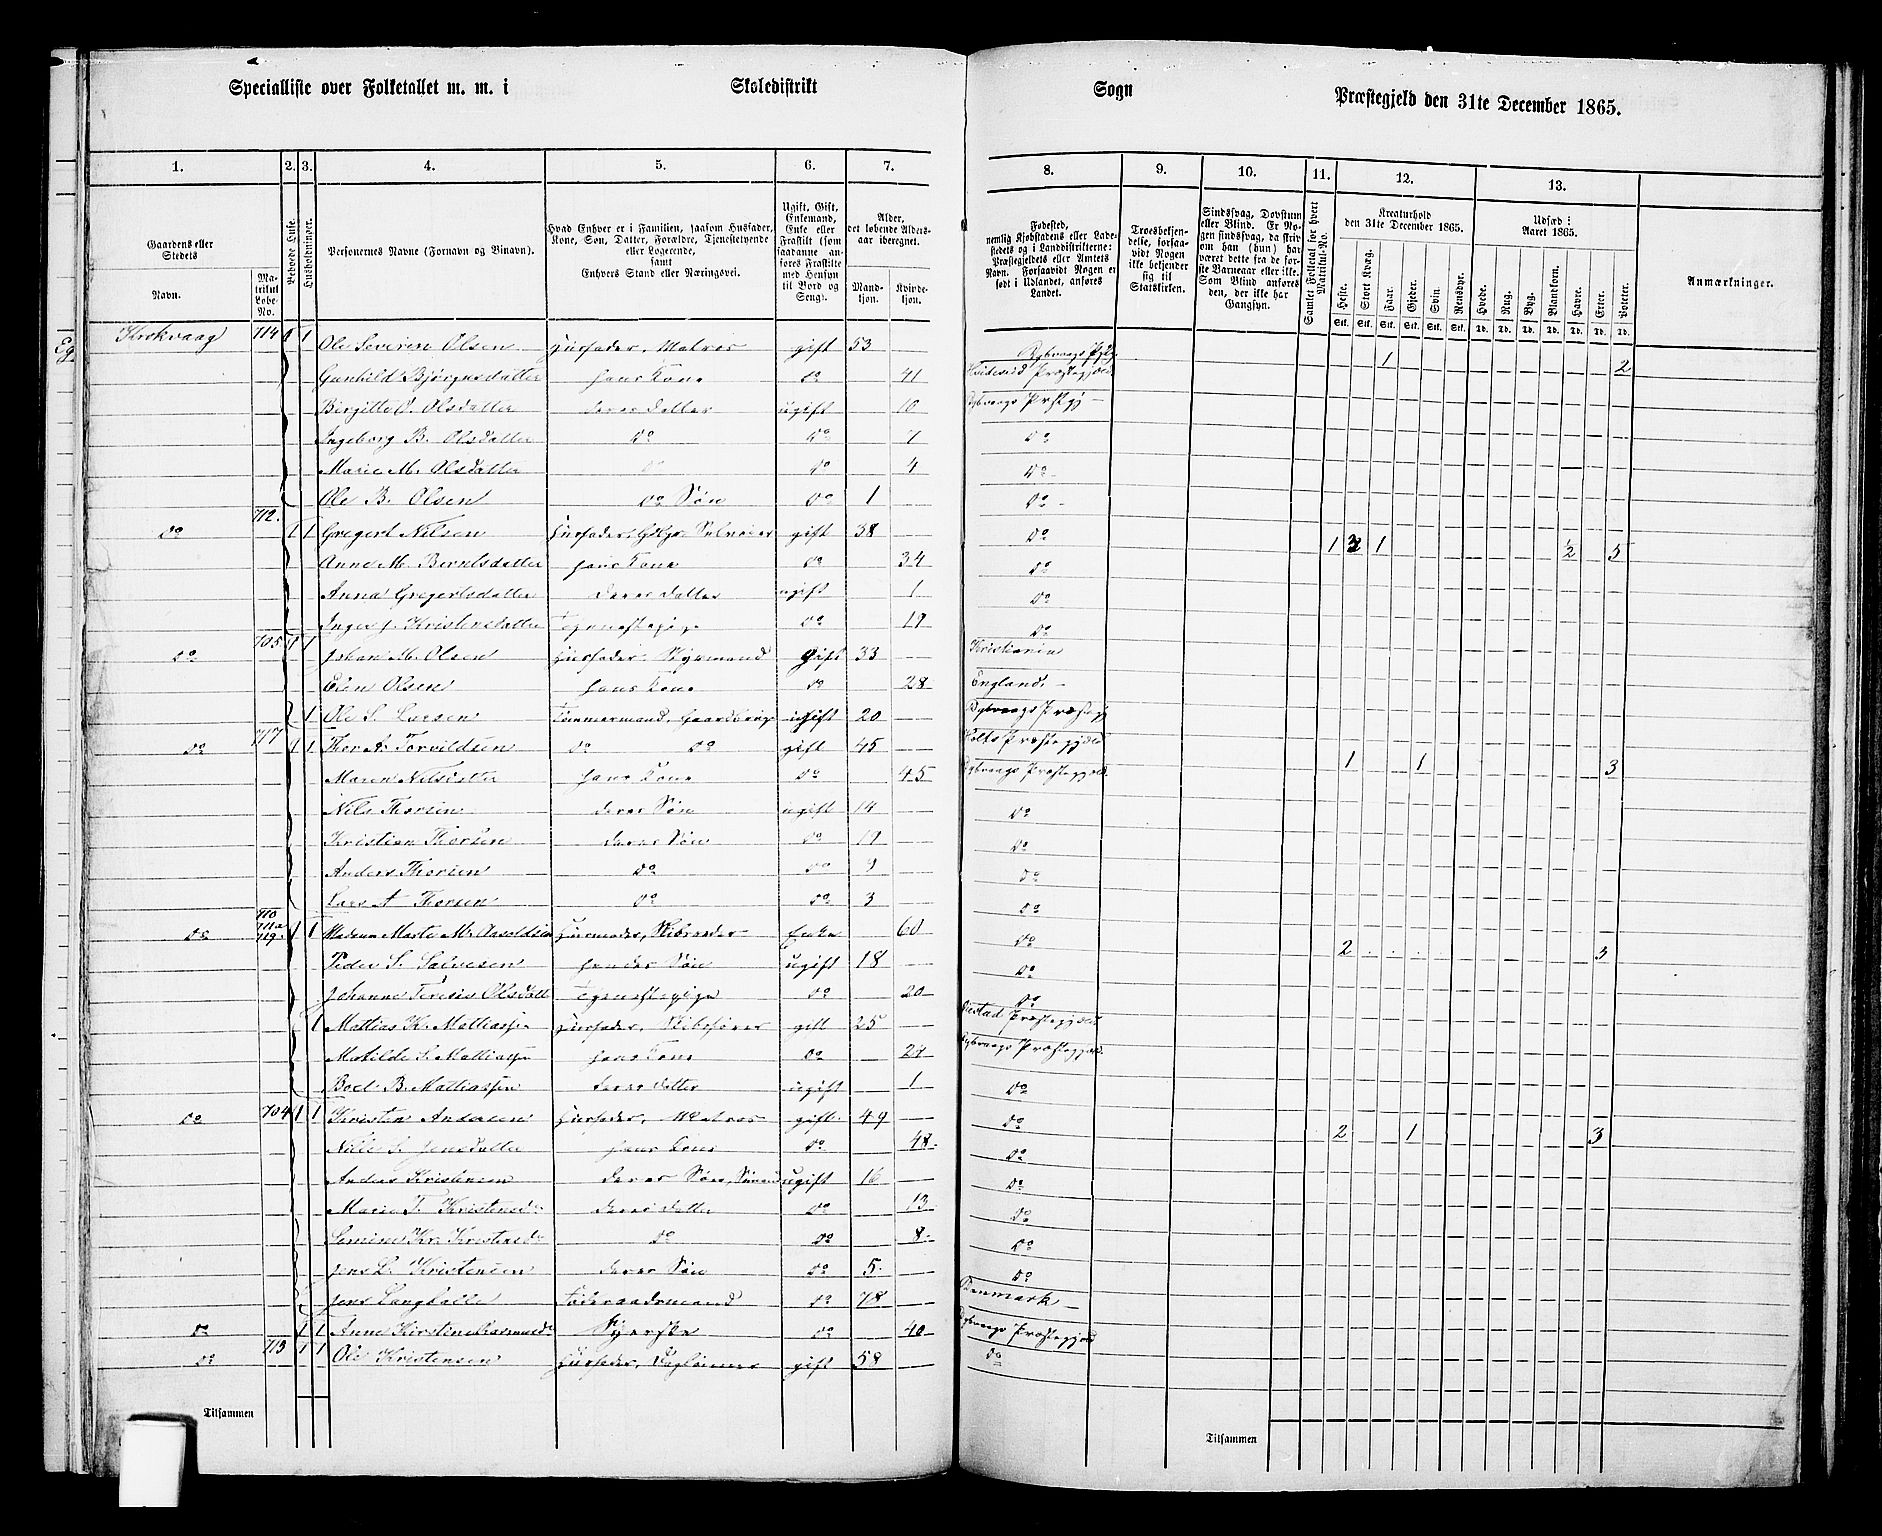 Specialliste over Folketallet m. m. i Skoledistrikt Sogn Præstegjeld den 31te December 1865.
1. 2. 3. 4. 5. 6. 7. 8. 9. 10. 11. 12. 13.
Gaardens eller Stedets Navn.
Matrikul Løbe-No.
Beboede Huse.
Husholdninger.
Personernes Navne (Fornavn og Binavn).
Hvad Enhver er i Familien, saasom Husfader, Kone, Søn, Datter, Forældre, Tjenestetyende eller Logerende, samt Enhvers Stand eller Næringsvei.
Ugift, Gift, Enkemand, Enke eller Fraskilt (som saadanne anføres Fraskilte med Hensyn til Bord og Seng).
Alder, det løbende Aldersaar iberegnet.
Mandkjøn. Kvindekjøn.
Fødested, nemlig Kjøbstadens eller Ladestedets og i Landdistrikterne: Præstegjeldets eller Amtets Navn. Forsaavidt Nogen er født i Udlandet, anføres Landet.
Troesbekjendelse, forsaavidt Nogen ikke bekjender sig til Statskirken.
Sindssvag, Døvstum eller Blind. Er Nogen sindssvag, da skrives om han (hun) har været dette fra de første Barneaar eller ikke. Som Blind anføres den, der ikke har Gangsyn.
Samlet Folketal for hvert Matrikul-No.
Kreaturhold den 31te December 1865.
Udsæd i Aaret 1865.
Heste. Stort Kvæg. Faar. Gjeder. Svin. Rensdyr. Hvede. Rug. Byg. Blandkorn. Havre. Erter. Poteter.
Stk. Stk. Stk. Stk. Stk. Stk. Td. Td. Td. Td. Td. Td. Td.
Anmærkninger.
Krokvaag 714 1 1 Ole Severin Olsen Husfader, Matros gift 53 Dybvaags 1 2
Gunhild Bjørgusdatter hans Kone do 41 Præstegjæld
Birgitte O. Olsdatter deres Datter ugift 10 Dybvaags Prstgj
Ingeborg B. Olsdatter do do 7 do
Marie M. Olsdatter do do 4 do
Ole B. Olsen do Søn do 1 do
do 712. 1 1 Gregert Nilsen Husfader, Selveier gift 38 do 1 1 1/2 5
Anne M. Berntsdatter hans Kone do 34 do
Anna Gregertsdatter deres Datter ugift 1 do
Inger J. Kristensdatter Tjenestepige do 19 do
do 705 1 1 Johan M. Olsen Husfader, Styrmand gift 33 Kristiania
Elen Olsen hans Kone do 28 England
1 Ole S. Larsen Tømmermand, ugift 20 Dybvaags Præstegj
do 717 1 1 Thor A. Torvildsen do do gift 45 Holts Præstegjæld 1 1 3
Maren Nilsdatter hans Kone do 45 Dybvaags Præstegjæld
Nils Thorsen deres Søn ugift 14 do
Kristian Thorsen deres Søn do 19 do
Anders Thorsen do do 9 do
Lars A Thorsen do do 3 do
do 710 711a 719 1 1 Madam Marte M. Aasoldsen Husmoder, Skibsreder Enke 60 do 2 3
Peder S. Salvesen hendes Søn ugift 18 do
Johanne Teresia Olsdatt Tjenestepige do 20 do
1 Mattias K. Mattiassen Husfader, Skibsfører gift 25 Præstegjæld
Matilde S. Mattiassen hans Kone do 24 Dybvaags Præstegjæld
Boel B. Mattiassen deres Datter ugift 1 do
do 704 1 1 Kristen Andersen Husfader, Matros gift 49 do 2 1 3
S. Jensdatter hans Kone do 48 do
Anders Kristensen deres Søn, Sømand ugift 16 do
Marie T. Kristensd. deres Datter do 13 do
Kr. Kristensd. do do 8 do
Jens L. Kristensen deres Søn do 5 do
Jens Langballe Føderaadsmand do 78 Denmark
do 1 1 Anne Kirstine Syerske do 40 Dybvaags Præstegjæld
do 713 1 1 Ole Kristensen Husfader, Daglønner gift 58 do
Tilsammen Tilsammen